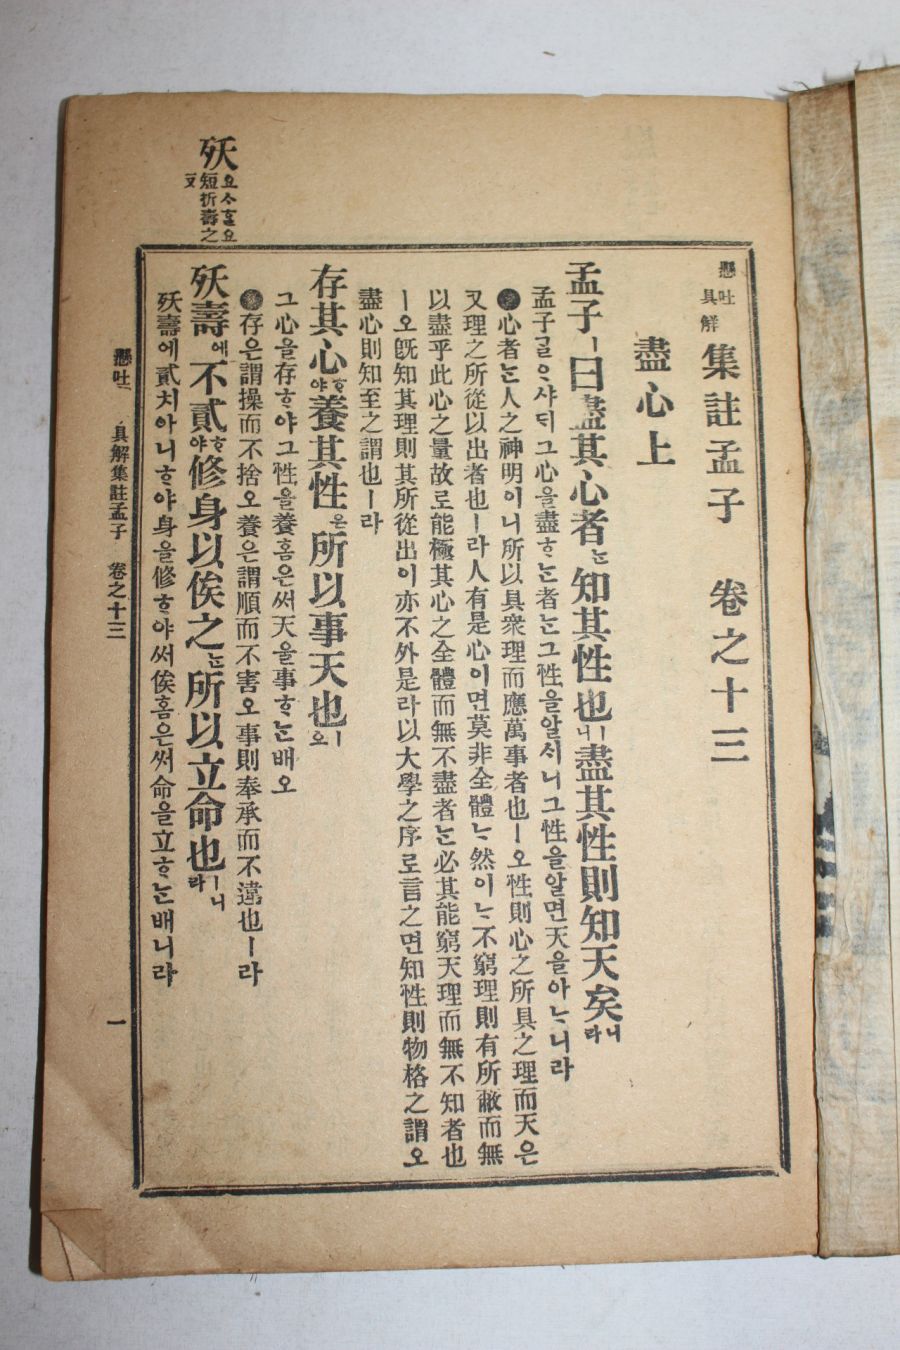 懸吐具解 集註孟子 卷之十三
盡心上
孟子ㅣ曰盡其心者ᄂᆞᆫ知其性也ㅣ니盡其性則知天矣니라
孟子ᄀᆞᆯᄋᆞ샤ᄃᆡ그心을盡ᄒᆞᄂᆞᆫ者ᄂᆞᆫ그性을알시니그性을알면天을아ᄂᆞ니라
心者ᄂᆞᆫ人之神明이니所以具衆理而應萬事者也ㅣ오性則心之所具之理而天은
又理之所從以出者也ㅣ라人有是心이면莫非全體ᄂᆞ然이ᄂᆞ不窮理則有所蔽而無
以盡乎此心之量故로能極其心之全體而無不盡者ᄂᆞᆫ必其能窮天理而無不知者也
ㅣ오旣知其理則其所從出이亦不外是라以大學之序로言之면知性則物格之謂오
盡心則知至之謂也ㅣ라
存其心ᄒᆞ야養其性은所以事天也ㅣ오
그心을存ᄒᆞ야그性을養홈은써天을事ᄒᆞᄂᆞᆫ배오
存은謂操而不捨오養은謂順而不害오事則奉承而不違也ㅣ라
殀壽에不貳ᄒᆞ야修身以俟之ᄂᆞᆫ所以立命也ㅣ니라
殀壽에貳치아니ᄒᆞ야身을修ᄒᆞ야써俟홈은써命을立ᄒᆞᄂᆞᆫ배니라
殀 요ᄉᆞᄒᆞᆯ요 短折壽之
懸吐 具解集註孟子 卷之十三
一